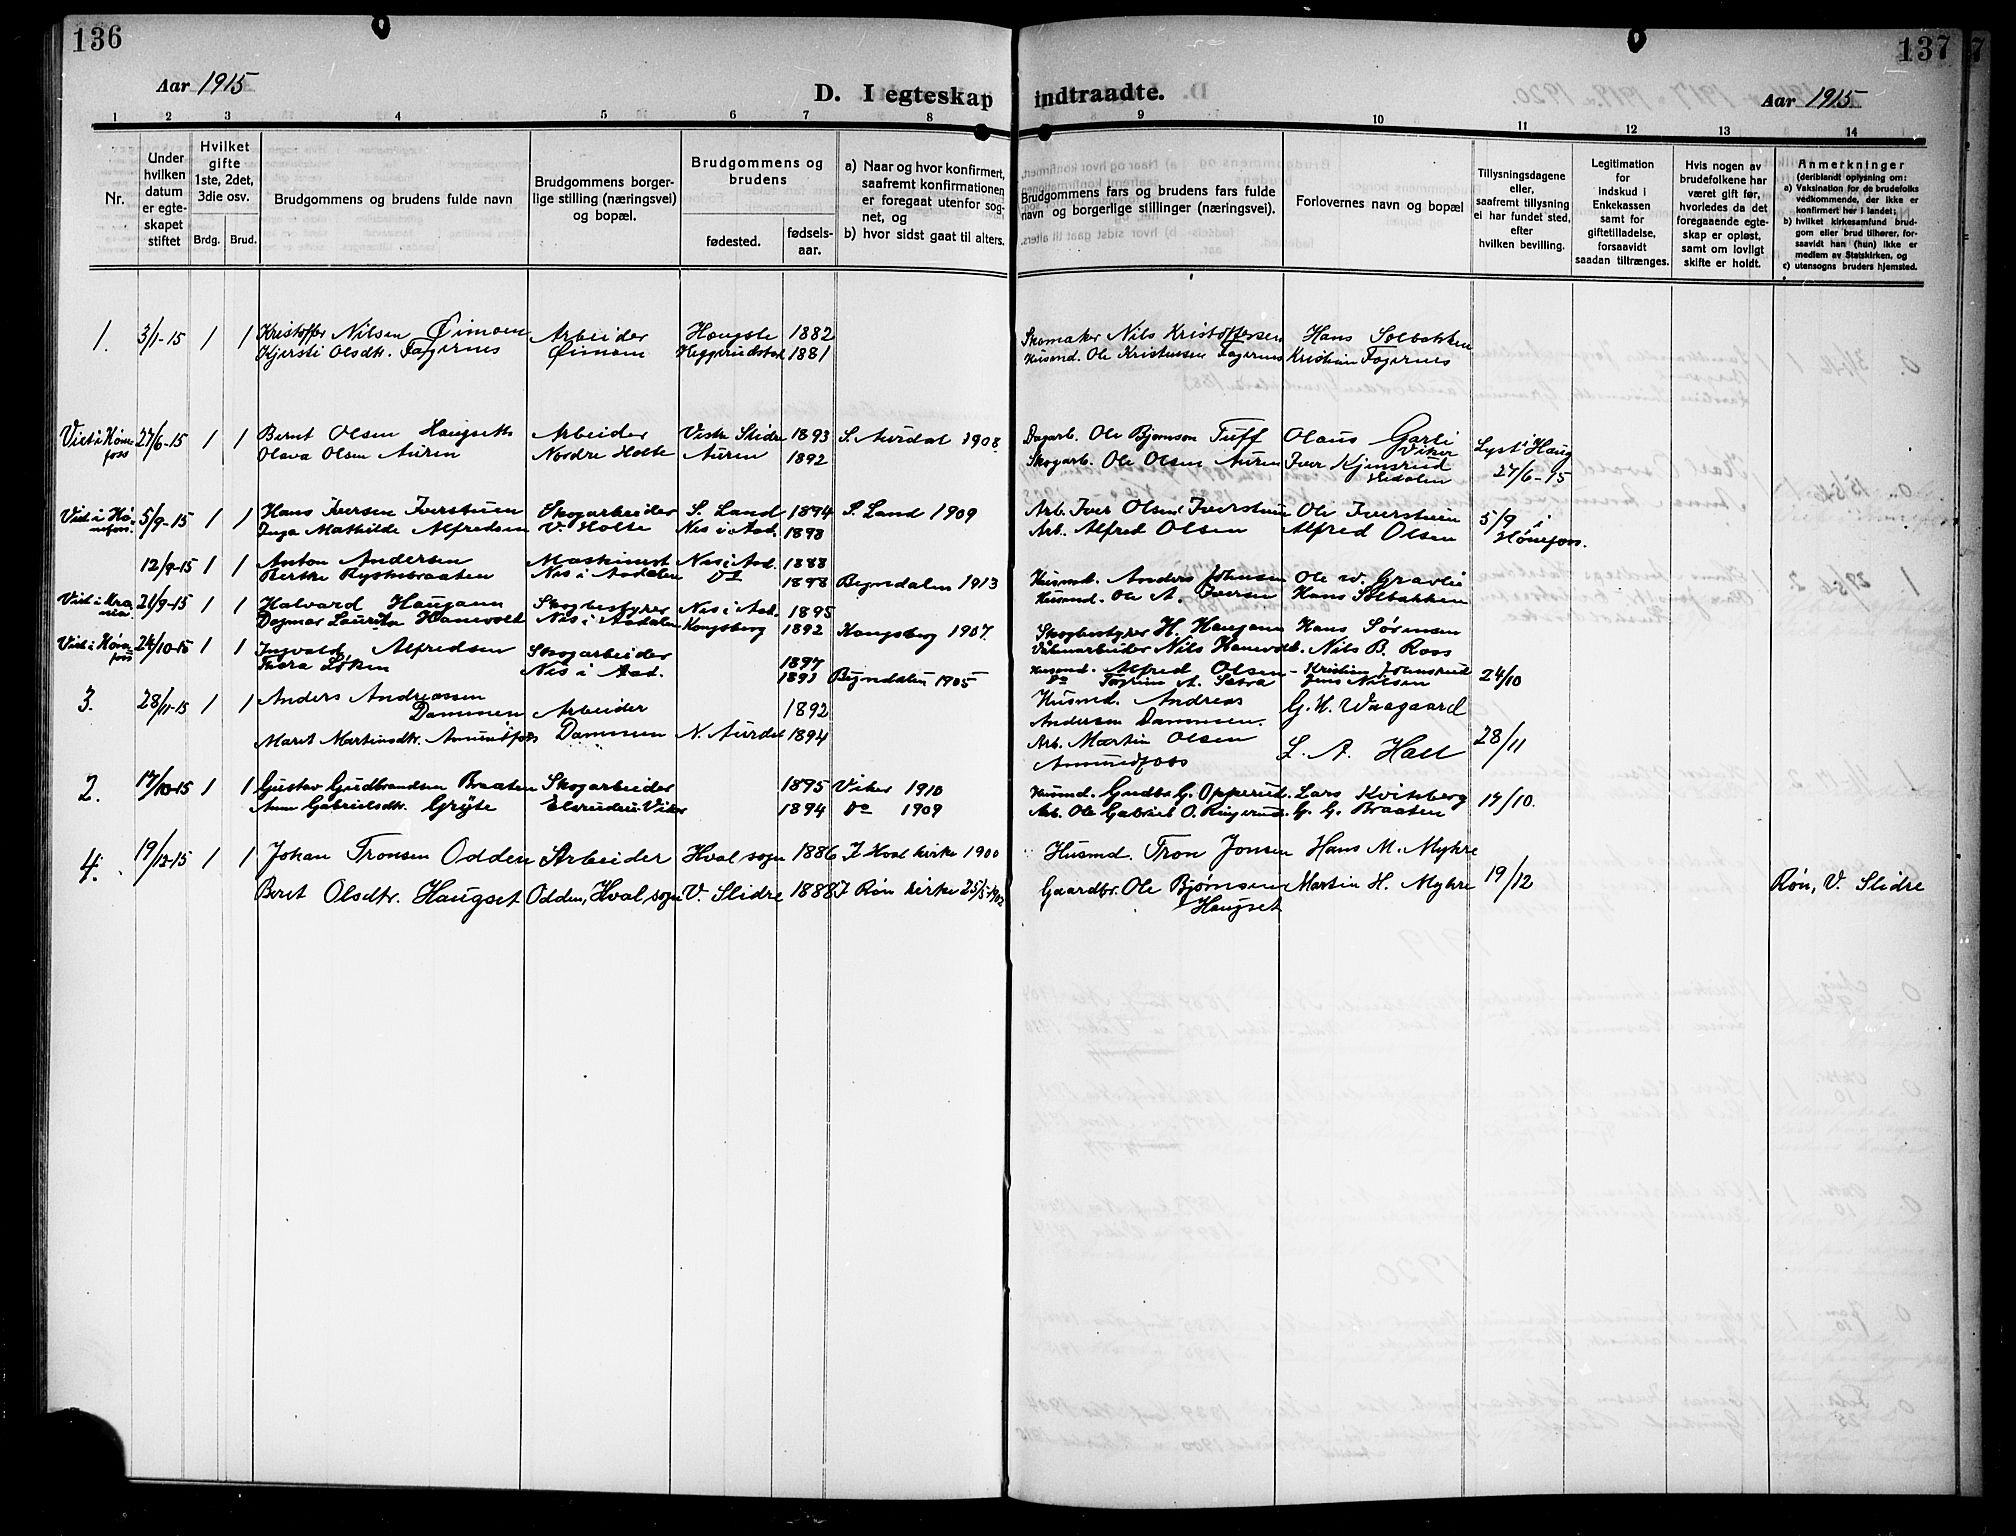 136
137
Aar 1915
D. I egteskap indtraadte.
Aar 1915
1 2 3 4 5 6 7 8 9 10 11 12 13 14
Nr.
Under hvilken datum er egteskapet stiftet
Hvilket gifte 1ste, 2det, 3die osv.
Brdg. Brud.
Brudgommens og brudens fulde navn
Brudgommens borgerlige stilling (næringsvei) og bopæl.
Brudgommens og brudens
fødested.
fødselsaar.
a) Naar og hvor konfirmert, saafremt konfirmationen er foregaat utenfor sognet, og
b) hvor sidst gaat til alters.
Brudgommens fars og brudens fars fulde navn og borgerlige stillinger (næringsvei).
Forlovernes navn og bopæl
Tillysningsdagene eller, saafremt tillysning ei har fundet sted, efter hvilken bevilling.
Legitimation for indskud i Enkekassen samt for giftetilladelse, forsaavidt saadan tiltrænges.
Hvis nogen av brudefolkene har været gift før, hvorledes da det foregaaende egteskap er opløst, samt om lovligt skifte er holdt.
Anmerkninger (deriblandt oplysning om:
a) Vaksination for de brudefolks vedkommende, der ikke er konfirmert her i landet;
b) hvilket kirkesamfund brudgom eller brud tilhører, forsaavidt han (hun) ikke er medlem av Statskirken, og
c) utensogns bruders hjemsted.
1. 3/1-15 1 1 Kristoffer Nilsen Øimoen Arbeider Hougste 1882 Skomaker Nils Kristoffersen Hans Solbakken
Kjersti Olsdtr. Fagernes Øimoen 1881 Husmd. Ole Kristensen Fagernes Kristian Fagernes
Viet i Hønefoss 27/6-15 1 1 Bernt Olsen Haugseth Arbeider Vestre Slidre 1893 S. Aurdal 1908. Dagarb. Ole Bjørnson Tuff Olaus Garli Viker Lyst i Haug
Olava Olsen Auren Nordre Holte Auren 1892 Skogarb. Ole Olsen Auren Iver Hedalen 27/6-15
Viet i Hønefoss. 5/9-15 1 1 Hans Iversen Iverstuen Skogarbeider S. Land 1894 S. Land 1909 Arb. Iver Olsen Iverstuen Ole Iverstuen 5/9 i
Inga Mathilde Alfredsen V. Holte Nes i Aad. 1898 Arb. Alfred Olsen Alfred Olsen Hønefoss.
12/9-15 1 1 Anton Andersen Maskinist Nes i Aad. 1888 Husmd. Anders Johnsen Ole W. Gravli
Berthe Nes i Aadalen Do 1898 Begndalen 1913 Husmd. Ole A. Iversen Hans Solbakken
21/9-15 1 1 Halvard Haugann Skogbestyrer Nes i Aad. 1895 Skogbestyrer H. Haugann Hans Sørensen
Dagmar Lauritza Hanevold Nes i Aadalen Kongsberg 1892 Kongsberg 1907. Nils Hanevold. Nils B. Ross
Viet i Hønefoss 24/10-15 1 1 Ingvald Alfredsen Skogarbeider 1897 Husmd. Alfred Olsen - Kristian 24/10
Thora Løken Nes i Aad. 1891 Begndalen 1905 Do A. Sætra Jens Nilsen
3. 28/11-15 1 1 Anders Andreassen Dammen Arbeider 1892 Husmd. Andreas Andersen Dammen. G. H. Waagaard
Marit Martinsdtr. Amundfoss Dammen N. Aurdal 1894 Arb. Martin Olsen Amundfoss L. A. Hall 28/11
2. 17/10-15 1 1 Gustav Gudbrandsen Braaten Skogarbeider 1895 Viker 1910 Husmd. Gudbr. G. Opperud. Lars Kvikberg 17/10.
Anne Gabrielsdtr. Grøte Elsrud i Viker 1894 Do 1909 Arb. Ole Gabriel O. Ringerud. G. G. Braaten
4. 19/12-15 1 1 Johan Tronsen Odden Arbeider Hval sogn 1886 I Hval kirke 1900 Husmd. Tron Jonsen Hans M. Myhre
Berit Olsdtr. Haugset Odden, Hval sogn V. Slidre 1888 I Røn kirke 25/5-1902 Gaardbr. Ole Bjørnsen Haugset Martin H. Myhre 19/12 Røn, V. Slidre